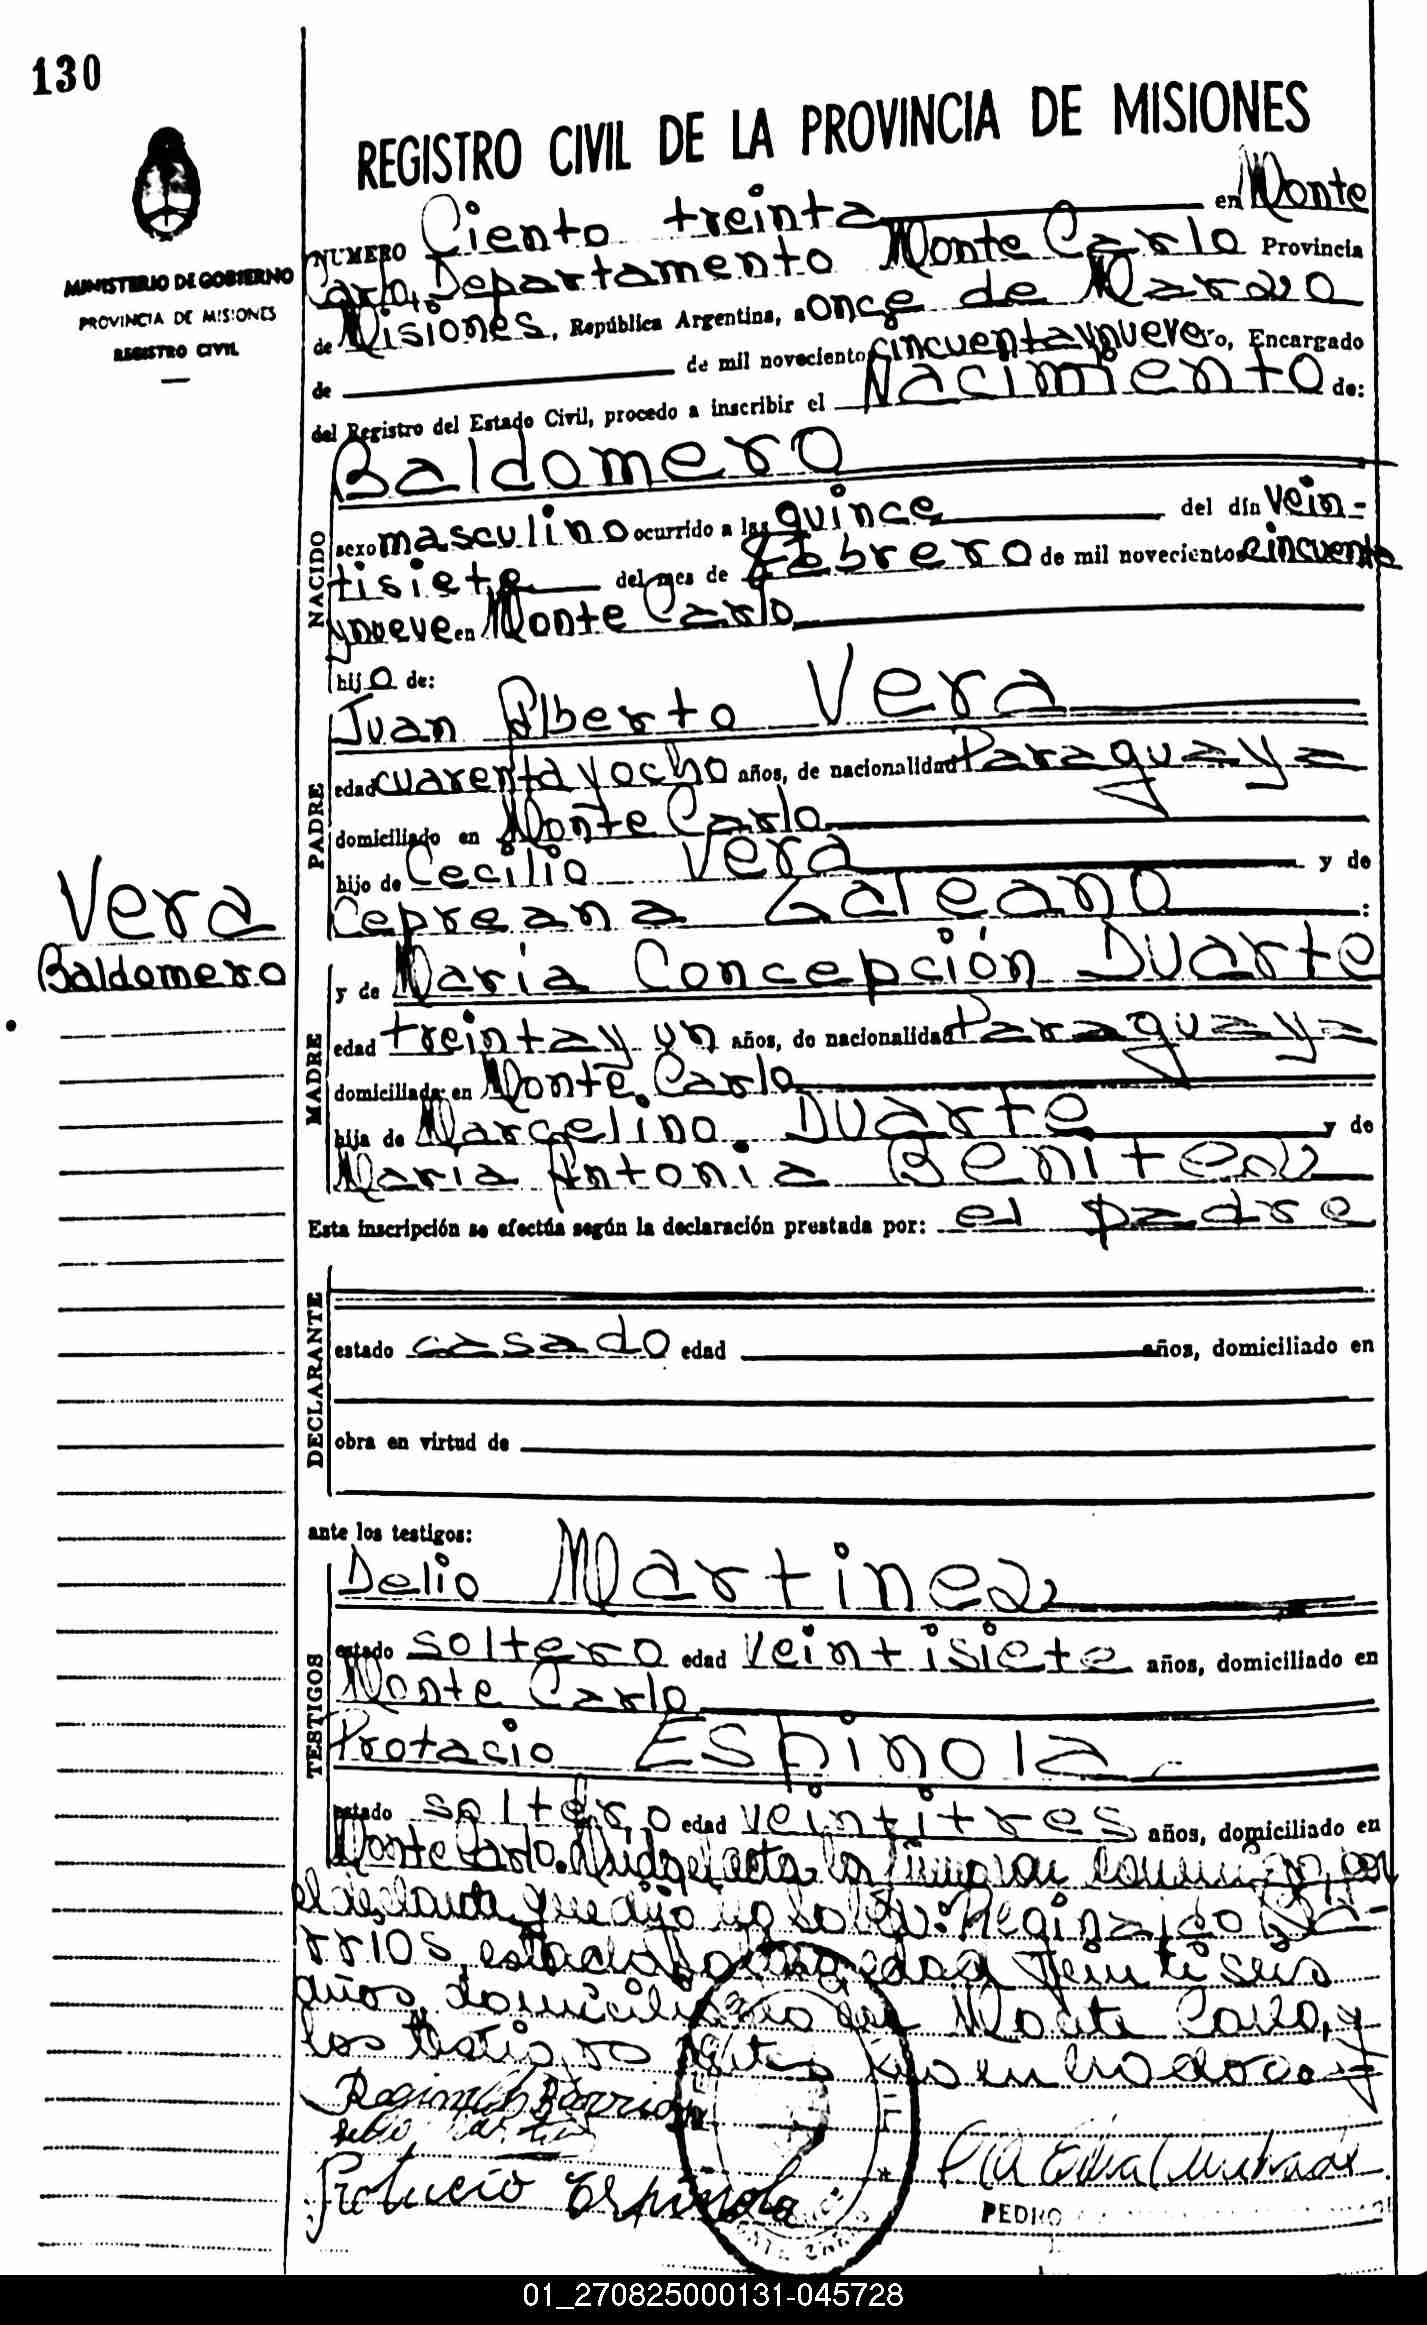 130
REGISTRO CIVIL DE LA PROVINCIA DE MISIONES
MINISTERIO DE GOBIERNO
PROVINCIA DE MISIONES
REGISTRO CIVIL
NUMERO Ciento treinta en Monte
Carlo, Departamento Monte Carlo Provincia
de Misiones, República Argentina, a once de Marzo
de de mil noveciento cincuenta y nueve yo, Encargado
del Registro del Estado Civil, procedo a inscribir el Nacimiento de:
NACIDO
Baldomero
sexo masculino ocurrido a las quince del día vein-
tisiete del mes de febrero de mil novecientos cincuenta
y nueve en Monte Carlo
hijo de:
PADRE
Juan Alberto Vera
edad cuarenta y ocho años, de nacionalidad Paraguaya
domiciliado en Monte Carlo
hijo de Cecilio Vera y de
Cepreana Galeano :
Vera
Baldomero
MADRE
y de Maria Concepción Duarte
edad treinta y un años, de nacionalidad Paraguaya
domiciliada en Monte Carlo
hija de Marcelino Duarte y de
Maria Antonia Benitez
Esta inscripción se efectúa según la declaración prestada por: el padre
DECLARANTE
estado casado edad años, domiciliado en
obra en virtud de
ante los testigos:
TESTIGOS
Delio Martinez
estado soltero edad veintisiete años, domiciliado en
Monte Carlo
Protacio Espinola
estado soltero edad veintitres años, domiciliado en
Monte Carlo. Leida el acta la firmaron conmigo, por
el declarante que dijo no saber: Reginaldo Ba-
rrios, estado soltero, edad veintiseis
años, domiciliado en Monte Carlo, y
los testigos
Reginaldo Barrios
Delio Martinez
Protacio Espinola
PEDRO
01_270825000131-045728